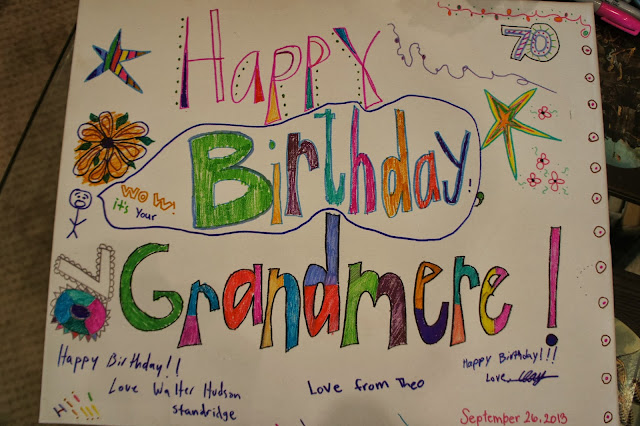 Happy
70
WOW!
it's Your
Birthday,
Grandmere!
Happy Birthday!!
Love Walter Hudson
Standridge
Love from Theo
Happy Birthday!!!
Love,
Hi!!!!
September 26, 2013